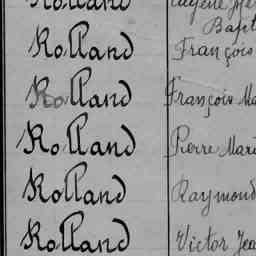 Rolland
Bapt
Rolland François
Rolland François Ma
Rolland Pierre Mari
Rolland Raymond
Rolland Victor Jea